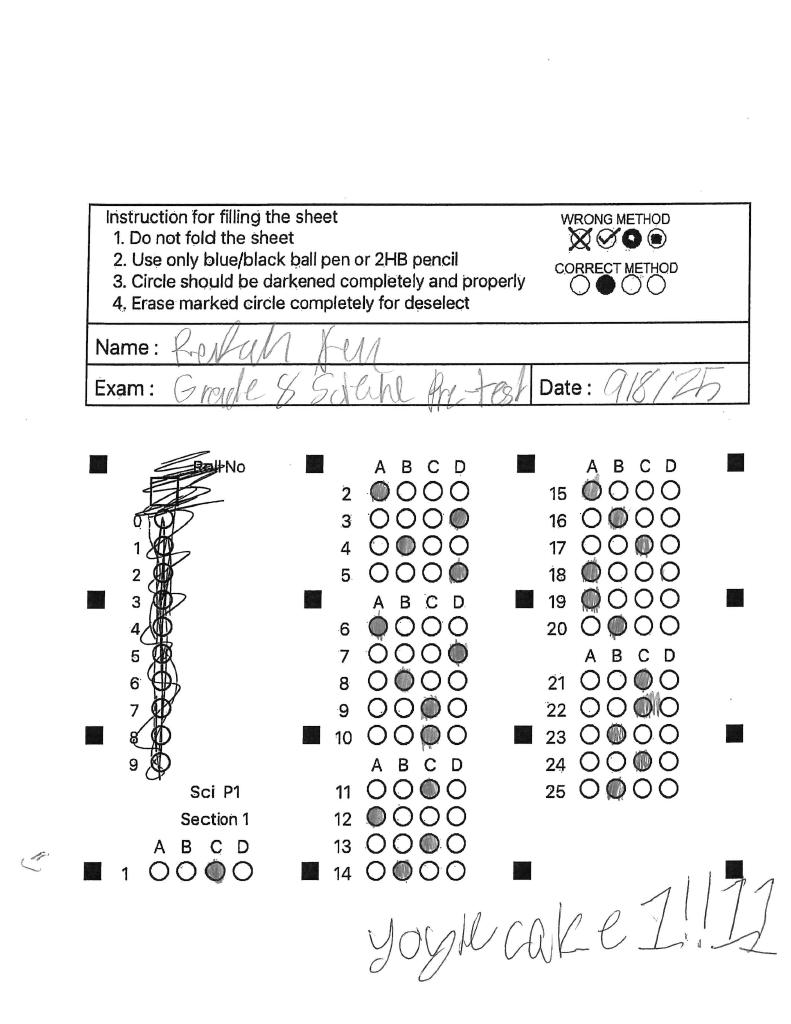 Instruction for filling the sheet
1. Do not fold the sheet
2. Use only blue/black ball pen or 2HB pencil
3. Circle should be darkened completely and properly
4. Erase marked circle completely for deselect
WRONG METHOD
CORRECT METHOD
Name :
Exam : Grade 8 Science Pre-test Date : 9/8/25
Roll No
0
1
2
3
4
5
6
7
8
9
Sci P1
Section 1
A B C D
1
A B C D
2
3
4
5
A B C D
6
7
8
9
10
A B C D
11
12
13
14
A B C D
15
16
17
18
19
20
A B C D
21
22
23
24
25
yoyle cake 1!!11